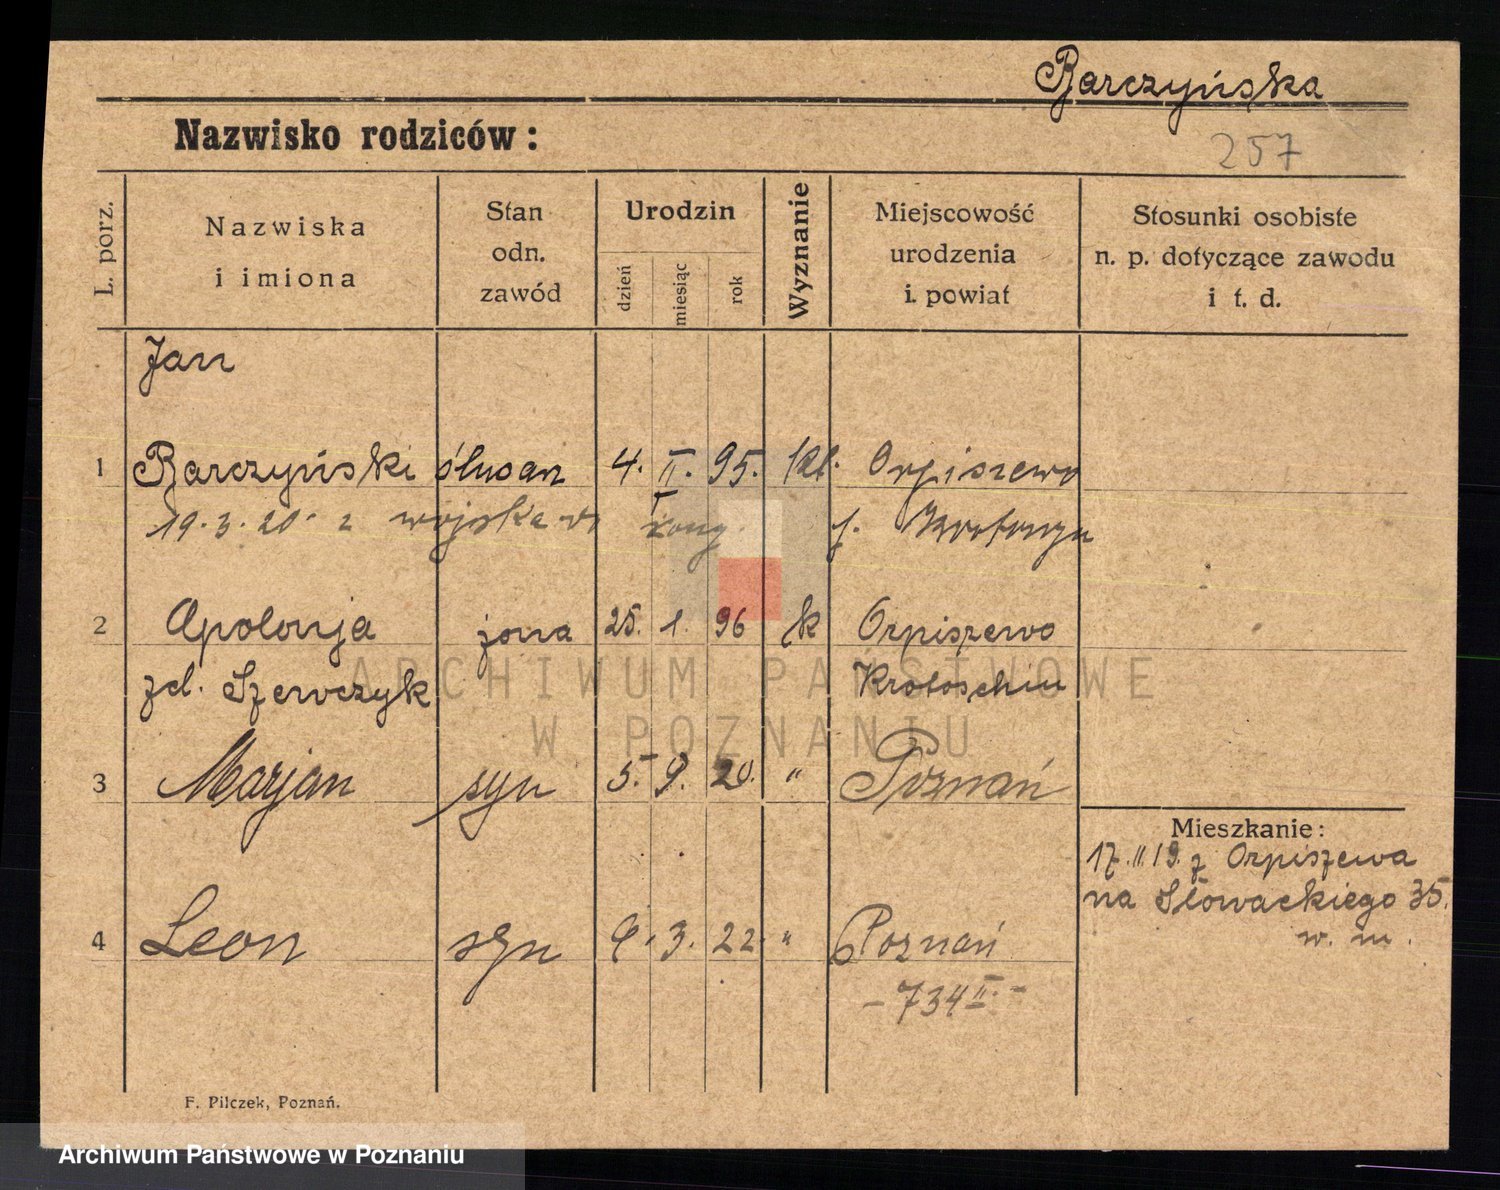 Barczyńska
Nazwisko rodziców:
257
L. porz.
Nazwiska
i imiona
Stan
odn.
zawód
Urodzin
dzień
miesiąc
rok
Wyznanie
Miejscowość
urodzenia
i. powiat
Stosunki osobiste
n. p. dotyczące zawodu
i t. d.
Jan
1 Barczyński ślusarz 4. II. 95. kat. Orpiszewo
19.3.20. z wojska żony p. Krotoszyn
2 Apolonja żona 25. 1. 96 k Orpiszewo
zd. Szewczyk Krotoschin
3 Marjan syn 5. 9. 20. " Poznań
Mieszkanie:
17.II 19. z Orpiszewa
na Słowackiego 35.
w. m.
4 Leon syn 9. 3. 22. " Poznań
-734 II.-
F. Pilczek, Poznań.
ARCHIWUM PAŃSTWOWE
W POZNANIU
Archiwum Państwowe w Poznaniu